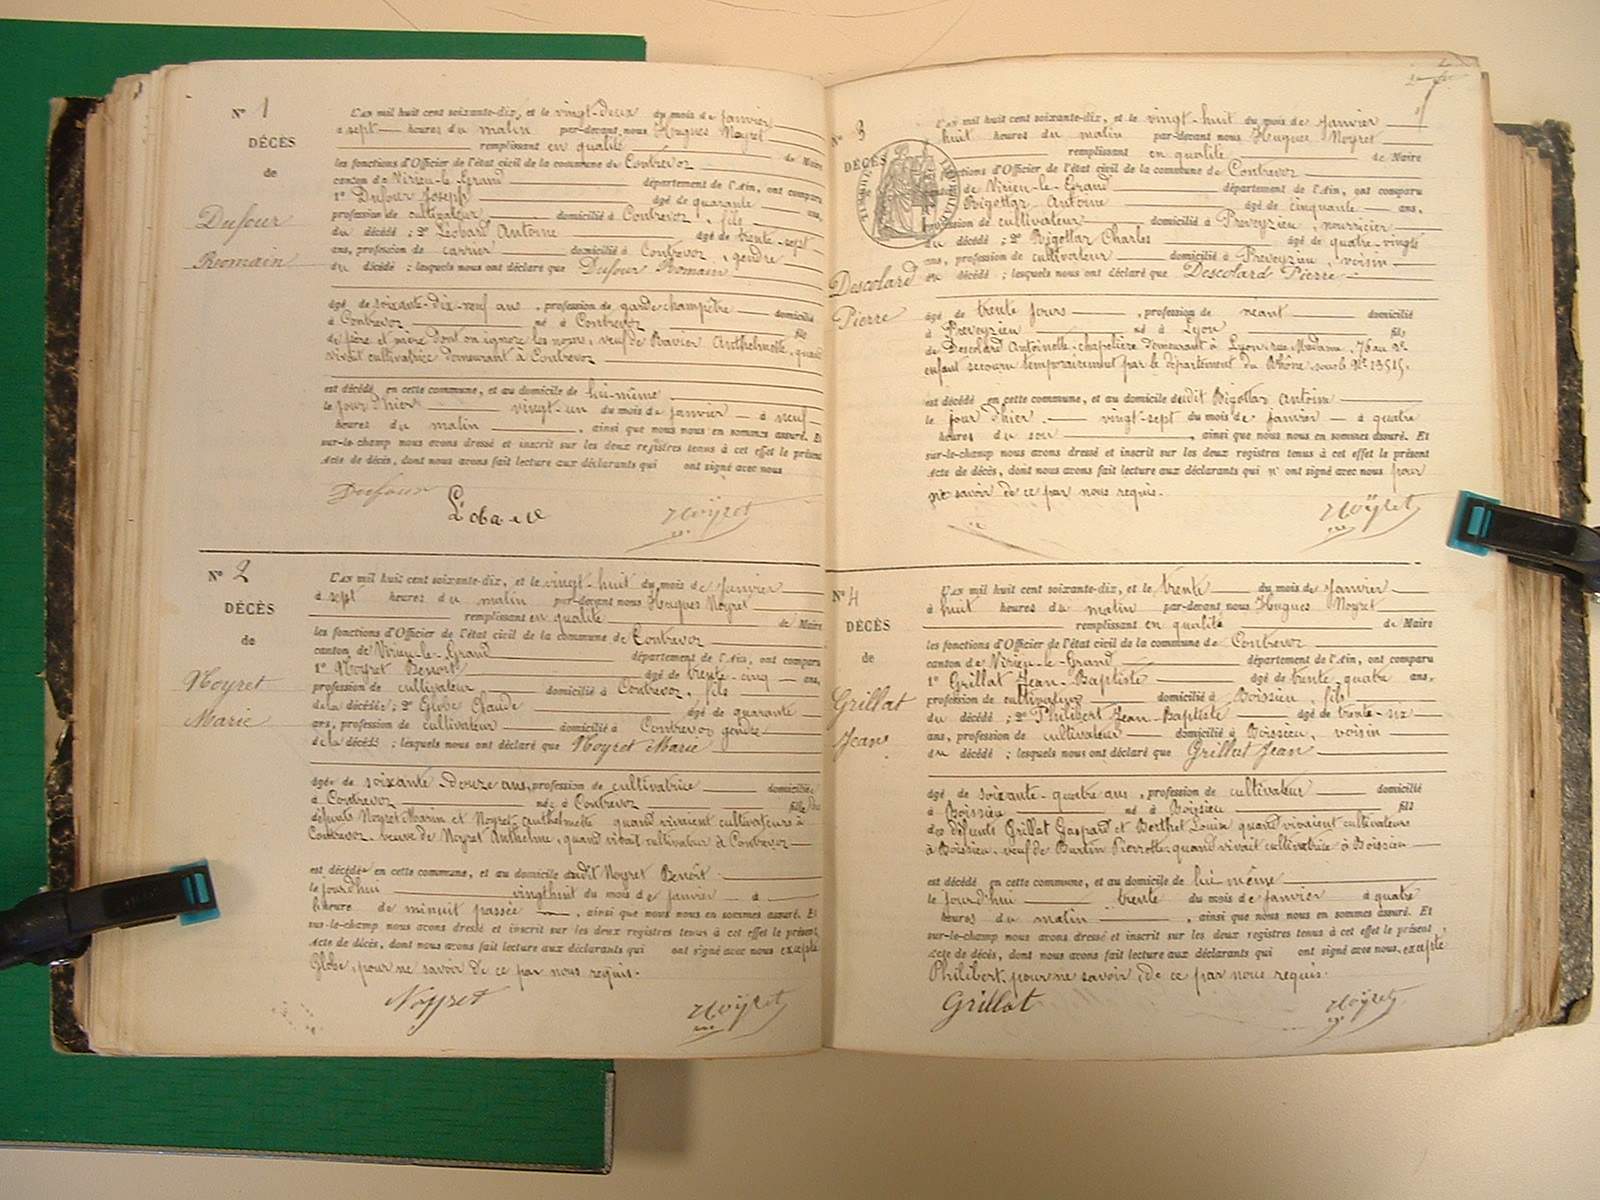 N° 1
DÉCÈS
de
Dufour
Romain
L'an mil huit cent soixante-dix, et le vingt-deux du mois de janvier
à sept heures du matin par-devant nous Hugues Noyret
remplissant en qualité de Maire
les fonctions d'Officier de l'état civil de la commune de Contrevoz
canton de Virieu-le-Grand département de l'Ain, ont comparu
1° Dufour Joseph âgé de quarante ans,
profession de cultivateur domicilié à Contrevoz, fils
du décédé ; 2° Léobard Antoine âgé de trente-sept
ans, profession de carrier domicilié à Contrevoz, gendre
du décédé ; lesquels nous ont déclaré que Dufour Romain
âgé de soixante-dix-neuf ans, profession de garde champêtre domicilié
à Contrevoz né à Contrevoz fils
de père et mère dont on ignore les noms, veuf de Ravier Anthelmette, quand
vivait cultivatrice demeurant à Contrevoz
est décédé en cette commune, et au domicile de lui-même
le jour d'hier vingt-un du mois de janvier à neuf
heures du matin, ainsi que nous nous en sommes assuré. Et
sur-le-champ nous avons dressé et inscrit sur les deux registres tenus à cet effet le présent
Acte de décès, dont nous avons fait lecture aux déclarants qui ont signé avec nous
Dufour Noyret
N° 2
DÉCÈS
de
Noyret
Marie
L'an mil huit cent soixante-dix, et le vingt-huit du mois de janvier
à sept heures du matin par-devant nous Hugues Noyret
remplissant en qualité de Maire
les fonctions d'Officier de l'état civil de la commune de Contrevoz
canton de Virieu-le-Grand département de l'Ain, ont comparu
1° Noyret Benoit âgé de trente-cinq ans,
profession de cultivateur domicilié à Contrevoz, fils
de la décédée ; 2° Globe Claude âgé de quarante
ans, profession de cultivateur domicilié à Contrevoz gendre
de la décédé ; lesquels nous ont déclaré que Noyret Marie
âgé de soixante douze ans, profession de cultivatrice domiciliée
à Contrevoz née à Contrevoz fille de
défunts Noyret Marin et Noyret Anthelmette quand vivaient cultivateurs à
Contrevoz, veuve de Noyret Anthelme, quand vivait cultivateur à Contrevoz
est décédée en cette commune, et au domicile dudit Noyret Benoit
le jourd'hui vingthuit du mois de janvier à
l'heure de minuit passée, ainsi que nous nous en sommes assuré. Et
sur-le-champ nous avons dressé et inscrit sur les deux registres tenus à cet effet le présent
Acte de décès, dont nous avons fait lecture aux déclarants qui ont signé avec nous excepté
Globe, pour ne savoir de ce par nous requis.
Noyret Noyret
N° 3
DÉCÈS
Descolard
Pierre
L'an mil huit cent soixante-dix, et le vingt-huit du mois de janvier
huit heures du matin par-devant nous Hugues Noyret
remplissant en qualité de Maire
fonctions d'Officier de l'état civil de la commune de Contrevoz
de Virieu-le-Grand département de l'Ain, ont comparu
Rigottaz Antoine âgé de cinquante ans,
profession de cultivateur domicilié à Preveyzieu, nourricier
du décédé ; 2° Rigottaz Charles âgé de quatre-vingts
ans, profession de cultivateur domicilié à Preveyzieu, voisin
du décédé ; lesquels nous ont déclaré que Descolard Pierre
âgé de trente jours, profession de néant domicilié
à Preveyzieu né à Lyon fils
de Descolard Antoinette, chapelière demeurant à Lyon, rue Madame, 76 au 2e
enfant secouru temporairement par le département du Rhône sous le N° 13515.
est décédé en cette commune, et au domicile dudit Rigottaz Antoine
le jour d'hier vingt-sept du mois de janvier à quatre
heures du soir, ainsi que nous nous en sommes assuré. Et
sur-le-champ nous avons dressé et inscrit sur les deux registres tenus à cet effet le présent
Acte de décès, dont nous avons fait lecture aux déclarants qui n'ont signé avec nous pour
ne savoir de ce par nous requis.
Noyret
N° 4
DÉCÈS
de
Grillat
Jean
L'an mil huit cent soixante-dix, et le trente du mois de janvier
à huit heures du matin par-devant nous Hugues Noyret
remplissant en qualité de Maire
les fonctions d'Officier de l'état civil de la commune de Contrevoz
canton de Virieu-le-Grand département de l'Ain, ont comparu
1° Grillat Jean-Baptiste âgé de trente-quatre ans,
profession de cultivateur domicilié à Boissieu, fils
du décédé ; 2° Philibert Jean-Baptiste âgé de trente-six
ans, profession de cultivateur domicilié à Boissieu, voisin
du décédé ; lesquels nous ont déclaré que Grillat Jean
âgé de soixante-quatre ans, profession de cultivateur domicilié
à Boissieu né à Boissieu fils
des défunts Grillat Gaspard et Berthet Louise quand vivaient cultivateurs
à Boissieu, veuf de Burtin Pierrotte, quand vivait cultivatrice à Boissieu
est décédé en cette commune, et au domicile de lui même
le jourd'hui trente du mois de janvier à quatre
heures du matin, ainsi que nous nous en sommes assuré. Et
sur-le-champ nous avons dressé et inscrit sur les deux registres tenus à cet effet le présent
Acte de décès, dont nous avons fait lecture aux déclarants qui ont signé avec nous, excepté
Philibert, pour ne savoir de ce par nous requis.
Grillat Noyret